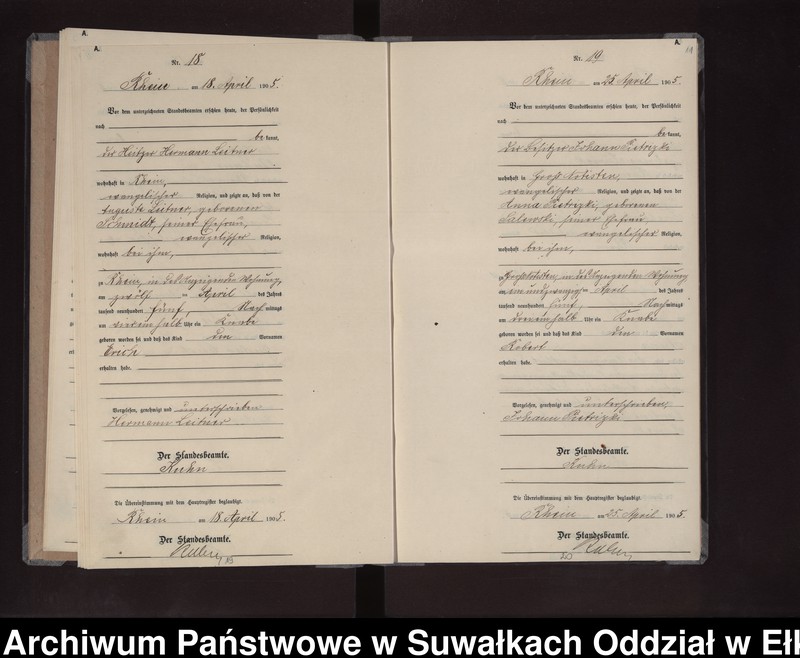 A.
Nr. 18.
Rhein am 18. April 1905.
Vor dem unterzeichneten Standesbeamten erschien heute, der Persönlichkeit
nach
be kannt,
der Heitzer Hermann Leitner
wohnhaft in Rhein,
evangelischer Religion, und zeigte an, daß von der
Auguste Leitner, geborenen
Schmidt, seiner Ehefrau,
evangelischer Religion,
wohnhaft bei ihm,
zu Rhein, in Wohnung,
am zwölf ten April des Jahres
tausend neunhundert fünf, Nach mittags
um einhalb Uhr ein Knabe
geboren worden sei und daß das Kind den Vornamen
Erich
erhalten habe.
Vorgelesen, genehmigt und unterschrieben
Hermann Leitner
Der Standesbeamte.
Kuhn
Die Übereinstimmung mit dem Hauptregister beglaubigt.
Rhein am 18. April 1905.
Der Standesbeamte.
A.
Nr. 19
Rhein am 25. April 1905.
Vor dem unterzeichneten Standesbeamten erschien heute, der Persönlichkeit
nach
be kannt,
der Besitzer Johann Pietrzyki
wohnhaft in Groß Notisten,
evangelischer Religion, und zeigte an, daß von der
Anna Pietrzyki, geborenen
Salewski, seiner Ehefrau,
evangelischer Religion,
wohnhaft bei ihm,
zu Groß Notisten, in Wohnung
am einundzwanzig ten April des Jahres
tausend neunhundert fünf, Nach mittags
um dreieinhalb Uhr ein Knabe
geboren worden sei und daß das Kind den Vornamen
Robert
erhalten habe.
Vorgelesen, genehmigt und unterschrieben,
Johann Pietrzyki
Der Standesbeamte.
Kuhn
Die Übereinstimmung mit dem Hauptregister beglaubigt.
Rhein am 25. April 1905.
Der Standesbeamte.
Archiwum Państwowe w Suwałkach Oddział w Ełk